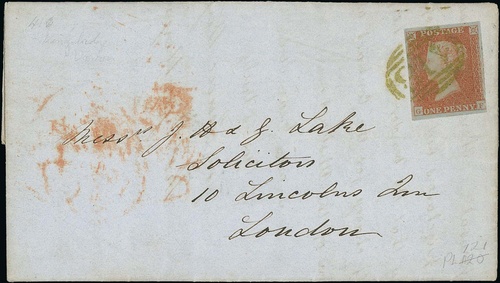 POSTAGE
ONE PENNY
Messrs J. H & J. Lake
Solicitors
10 Lincolns Inn
London
121